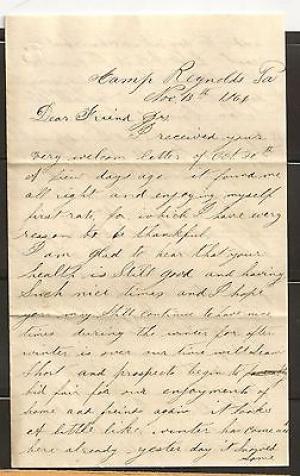 Camp Reynolds Pa
Nov. 13th 1864
Dear Friend
I received your
very welcom letter of Oct. 30th
A fiew days ago it found me
all right and enjoying myself
first rate, for which I have every
reason to be thankful,
I am glad to hear that your
health is Still good and having
Such nice times and I hope
you may Still continue to have nice
times during the winter for after
winter is over our time will draw
Short and prospects begin to
bid fair for our enjoyments of
home and freinds again it looks
A little like winter has come
here already yesterday it Snowed
Some